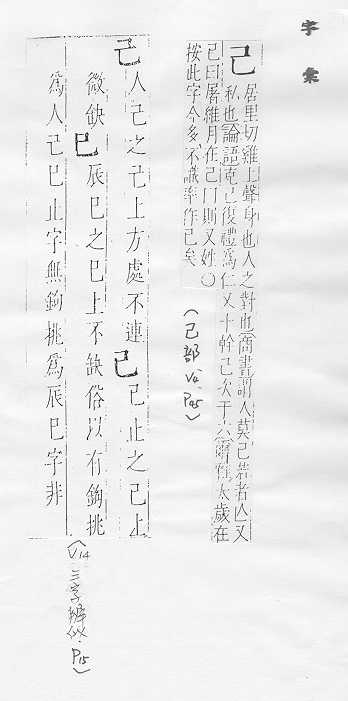 字彙
己 居里切雞上聲身也人之對也商書謂人莫己若者亾又
私也論語克己復禮爲仁又十幹己次于六爾雅太歲在
己曰屠維月在己曰則又姓〇
按此字今多不識率作已矣
(己部 V4 P45)
己 人己之己上方處不連 已 已止之已上
微缺 巳 辰巳之巳上不缺俗以有鉤挑
爲人己已止字無鉤挑爲辰巳字非
(V14 三字辨似 P15)